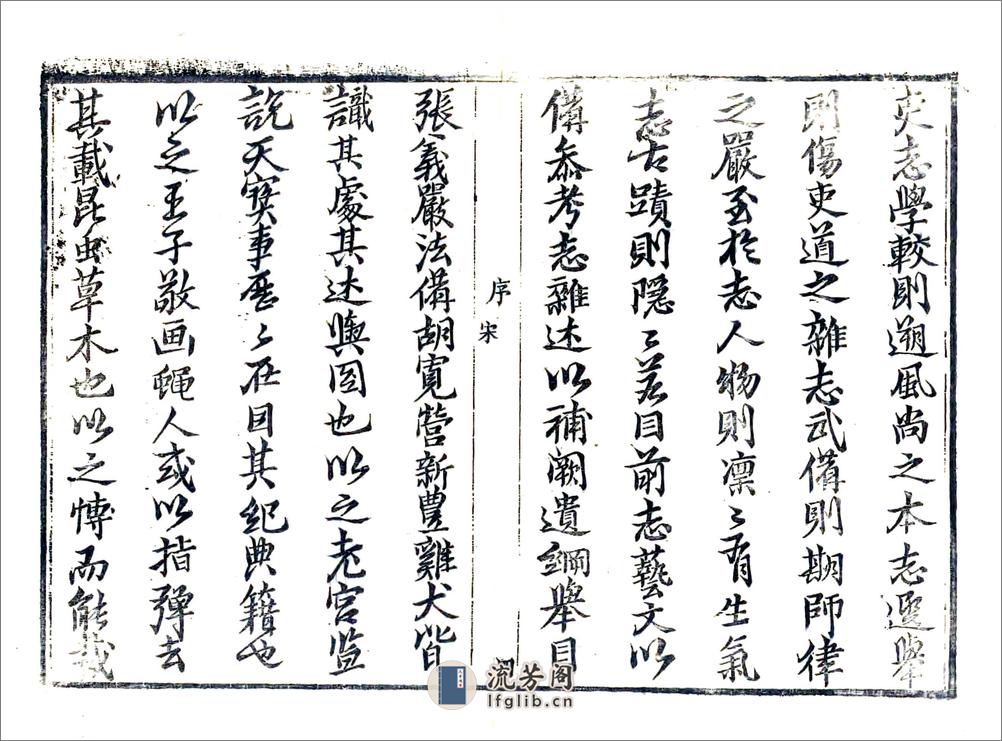 吏志學較則遡風尚之本志選舉
則傷吏道之雜志武備則期師律
之嚴至於志人物則凛〻有生氣
志古蹟則隱〻若目前志藝文以
備叅考志雜述以補闕遺綱舉目
序 宋
張義嚴法備胡寬營新豊雞犬皆
識其處其述輿圖也以之老宮监
說天寳事歷〻在目其紀典籍也
以之王子敬画蝇人或以指彈去
其載昆虫草木也以之博而能裁
流芳阁
lfglib.cn